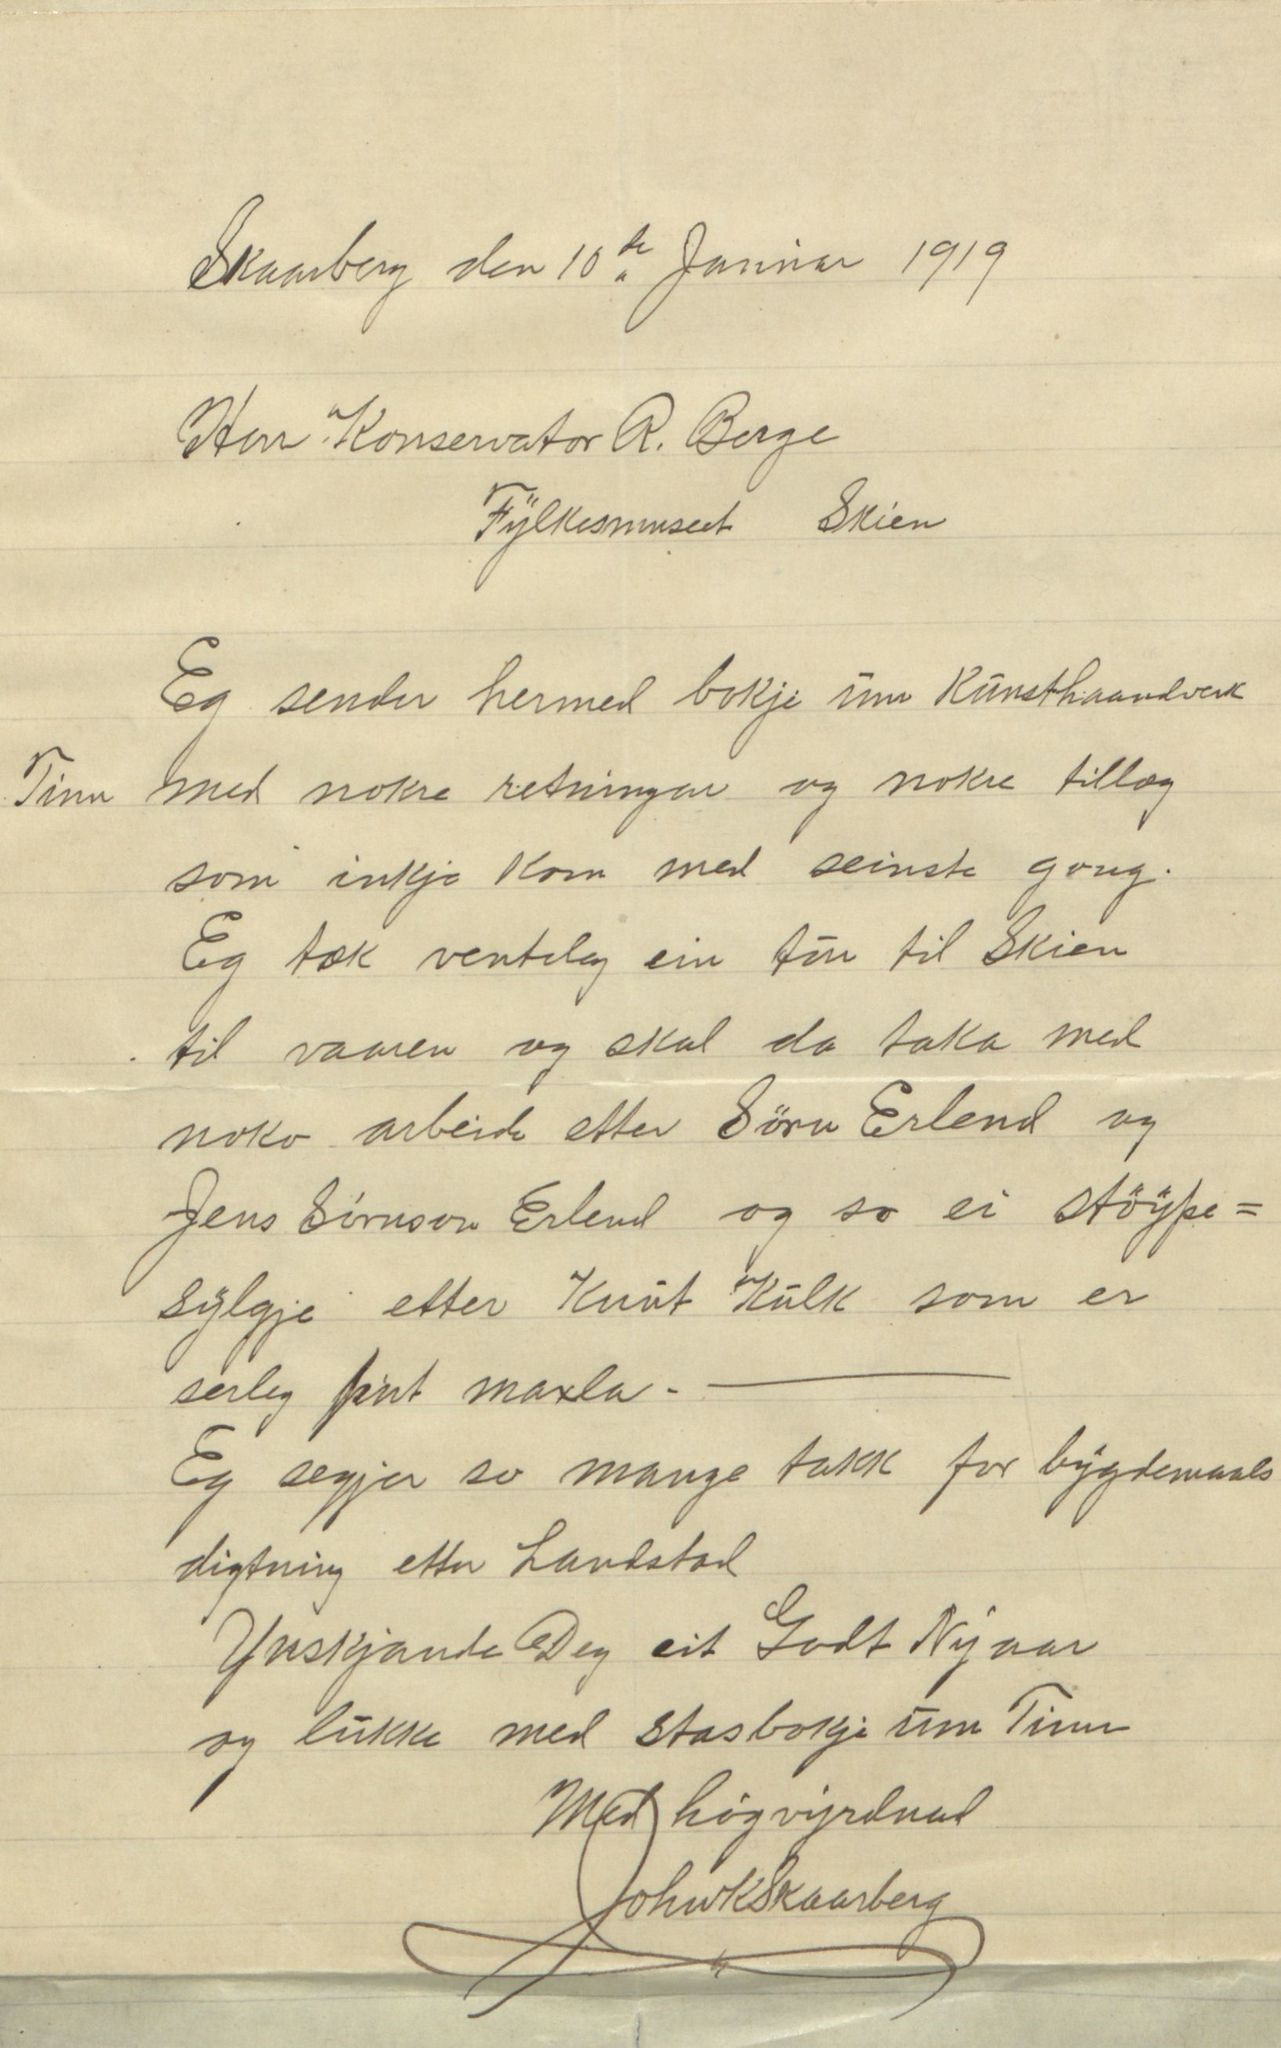 Skaarberg den 10de Januar 1919
Herr Konservator R. Berge
Fylkesmuseet Skien
Eg sender hermed bokje um Kunsthaandverk
Tinn med nokre retningar og nokre tillæg
som inkje kom med seinste gong.
Eg tæk venteleg ein tur til Skien
til vaaren og skal da taka med
noko arbeide etter Sörn Erlend og
Jens Sörnson Erlend og so ei stöype=
sylgje etter Knut Kulk som er
serleg fint maxla. —
Eg segjer so mange takk for bygdemaals
digtning etter Landstad
Ynskjande Deg eit Godt Nyaar
og lukke med stasbokje um Tinn
Med högvyrdnad
John K Skaarberg